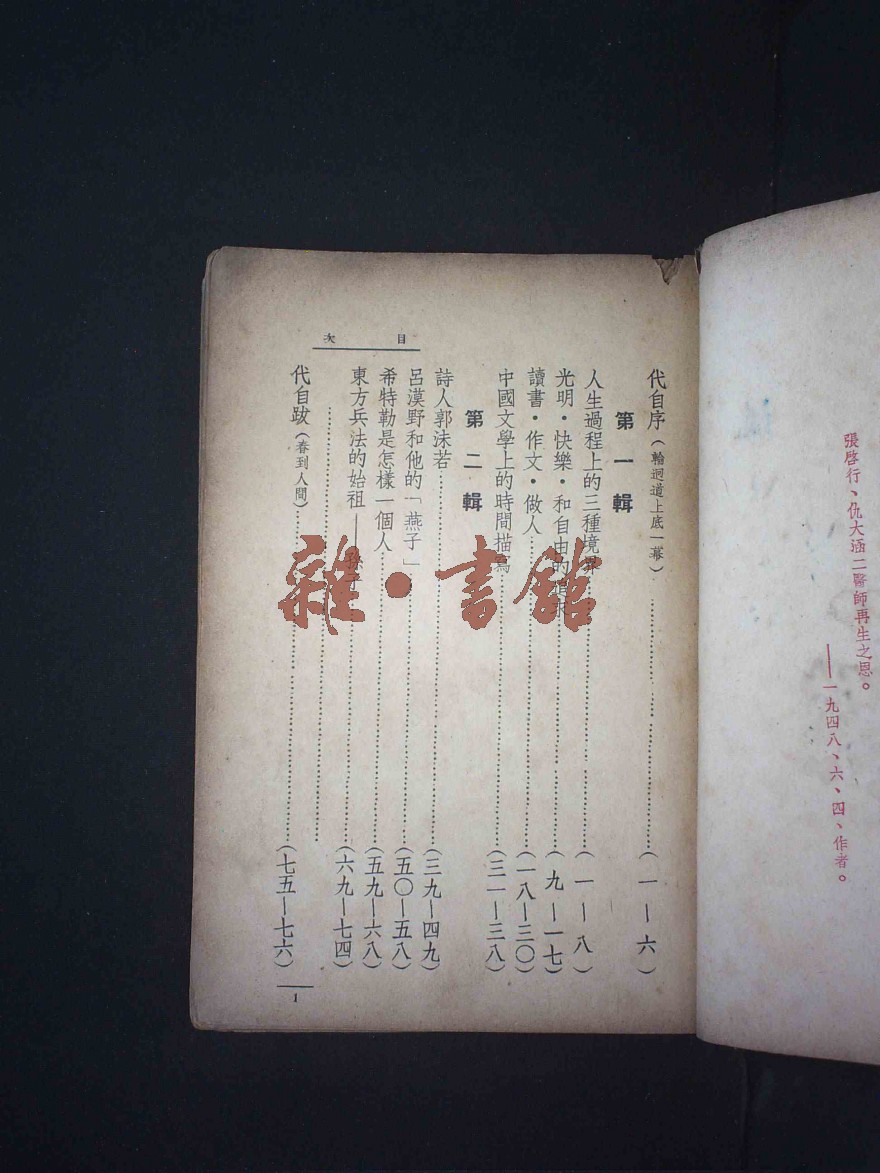 張啓行、仇大涵二醫師再生之恩。
——一九四八、六、四、作者。
目次
代自序(輪迴道上底一幕)…………(一—六)
第一輯
人生過程上的三種境界…………(一—八)
光明・快樂・和自由的追求…………(九—一七)
讀書・作文・做人…………(一八—三〇)
中國文學上的時間描寫…………(三一—三八)
第二輯
詩人郭沫若…………(三九—四九)
呂漠野和他的「燕子」…………(五〇—五八)
希特勒是怎樣一個人…………(五九—六八)
東方兵法的始祖——孫子…………(六九—七四)
代自跋(春到人間)…………(七五—七六)
1
雜・書舘